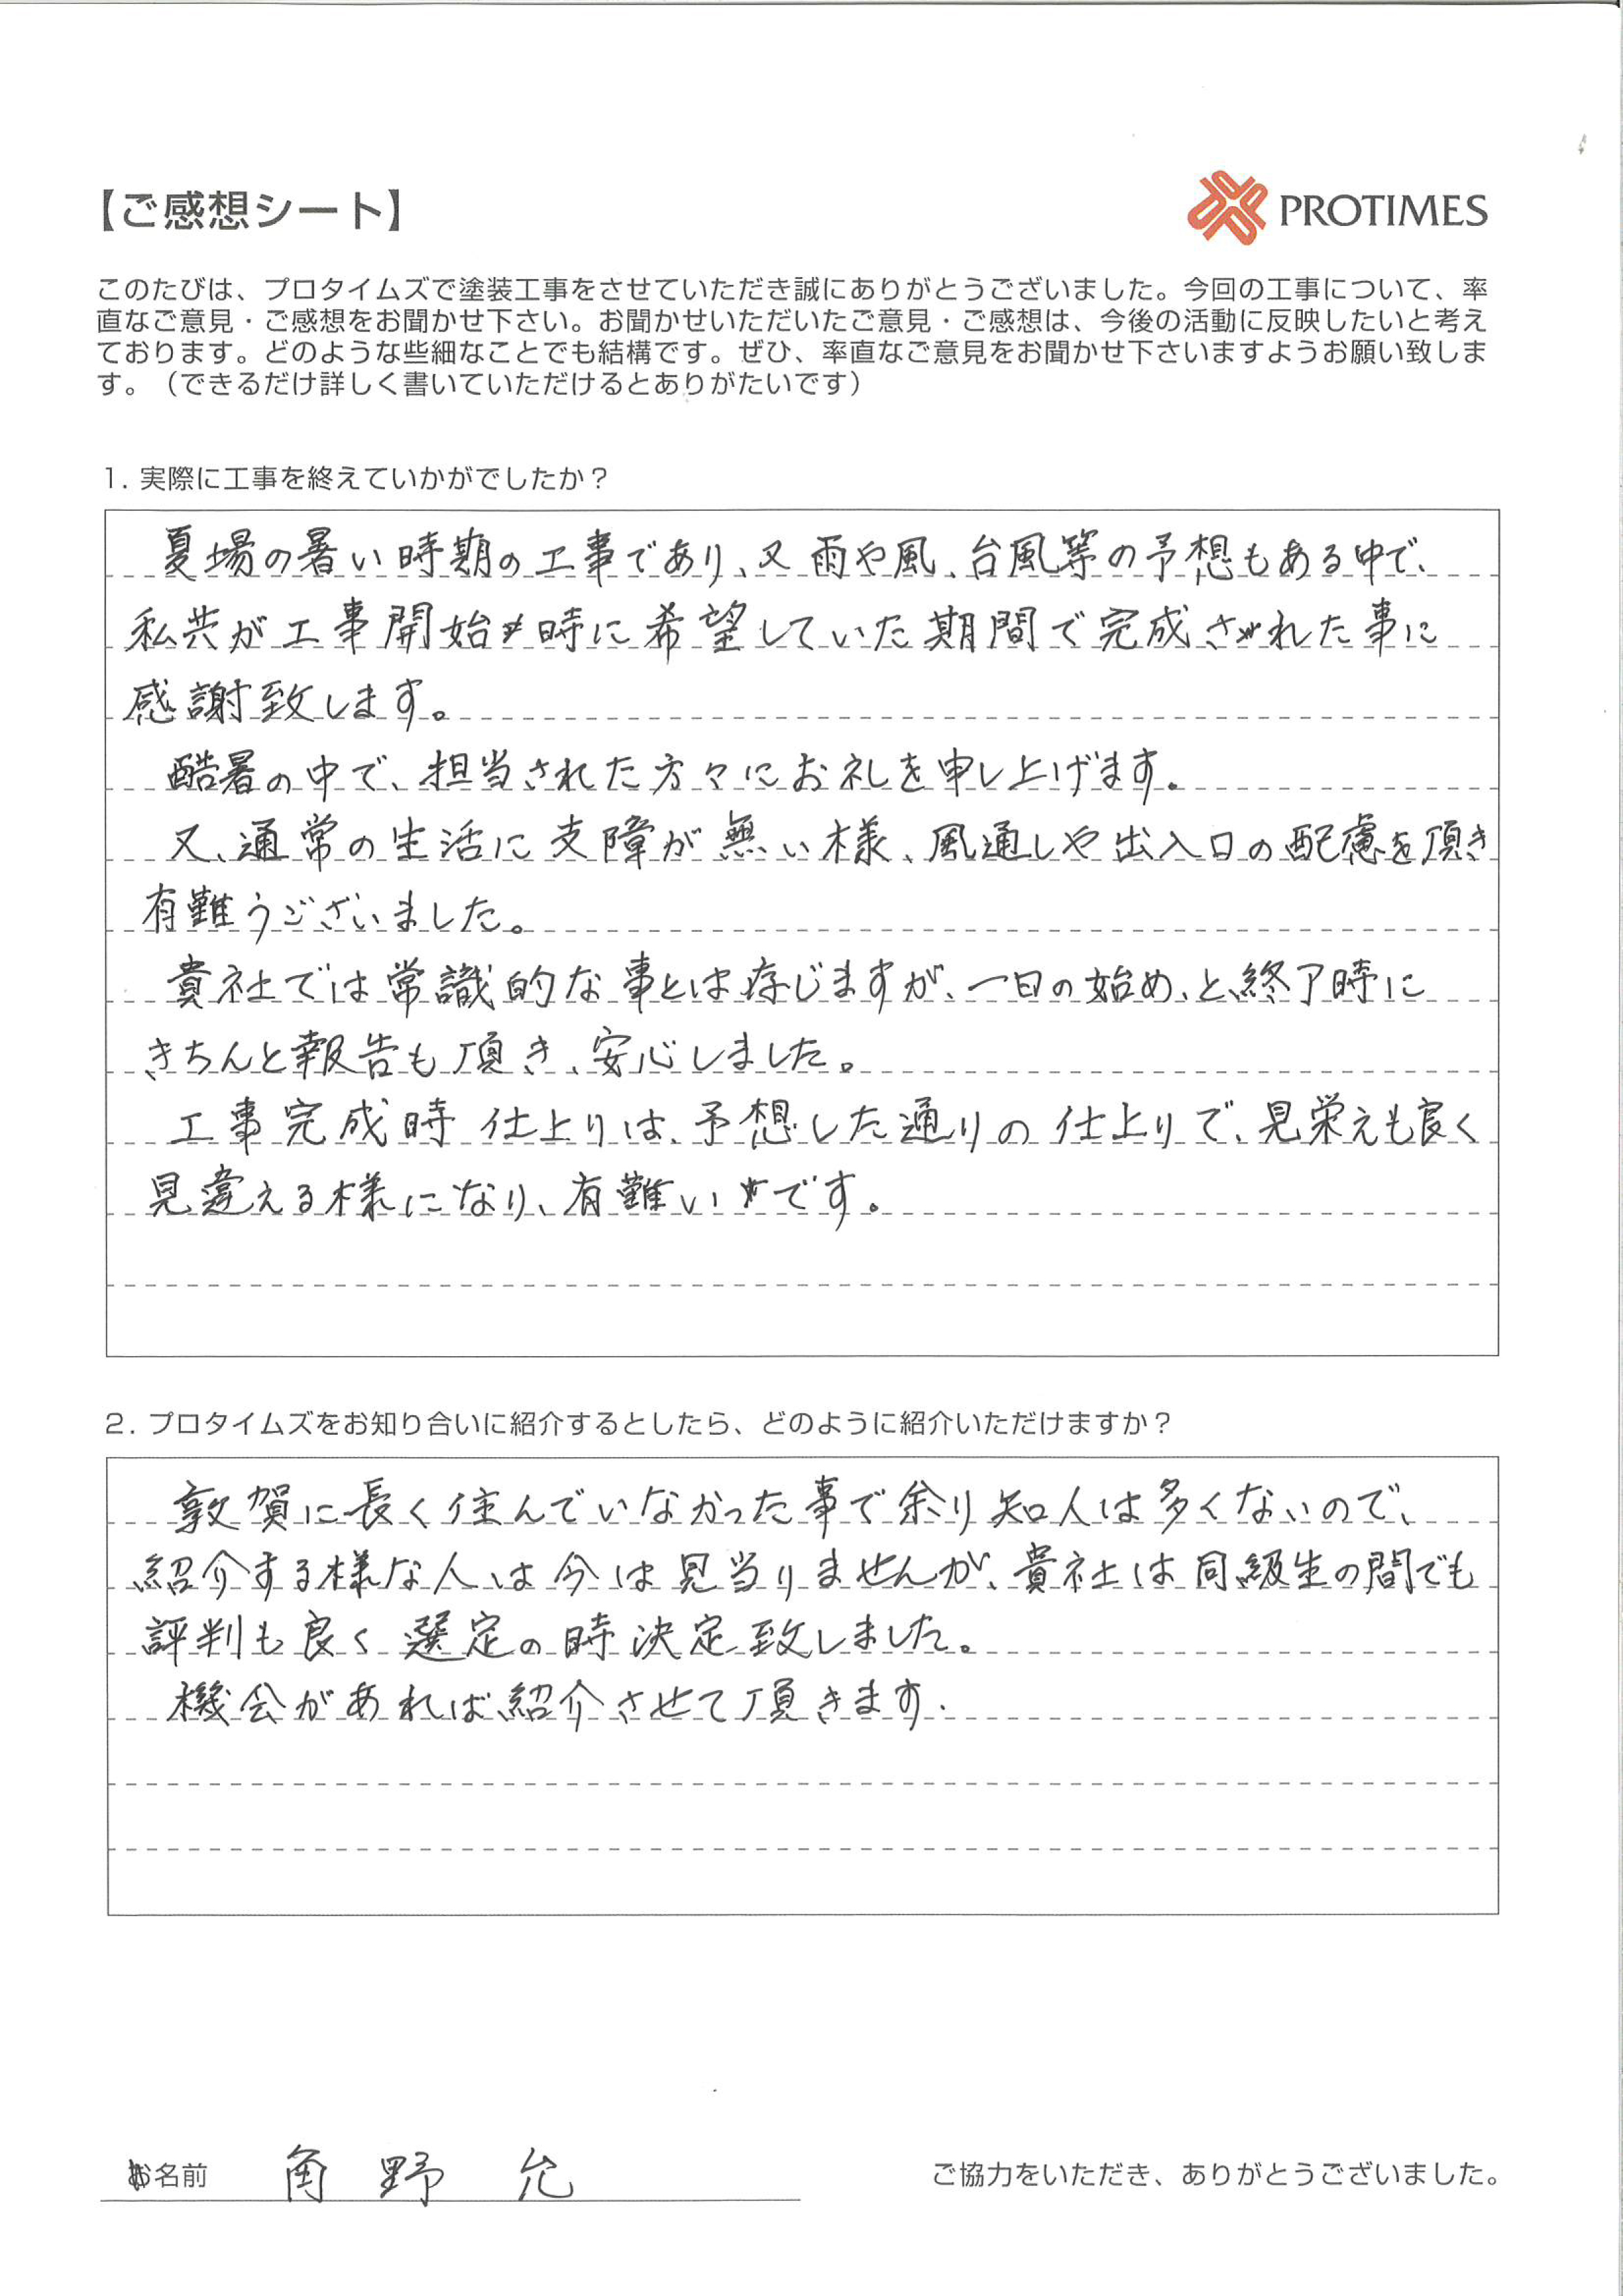 【ご感想シート】
PROTIMES
このたびは、プロタイムズで塗装工事をさせていただき誠にありがとうございました。今回の工事について、率
直なご意見・ご感想をお聞かせ下さい。お聞かせいただいたご意見・ご感想は、今後の活動に反映したいと考え
ております。どのような些細なことでも結構です。ぜひ、率直なご意見をお聞かせ下さいますようお願い致しま
す。（できるだけ詳しく書いていただけるとありがたいです）
1. 実際に工事を終えていかがでしたか？
夏場の暑い時期の工事であり、又雨や風、台風等の予想もある中で、
私共が工事開始時に希望していた期間で完成された事に
感謝致します。
酷暑の中で、担当された方々にお礼を申し上げます。
又、通常の生活に支障が無い様、風通しや出入口の配慮を頂き
有難うございました。
貴社では常識的な事とは存じますが、一日の始め、と、終了時に
きちんと報告も頂き、安心しました。
工事完成時 仕上りは、予想した通りの仕上りで、見栄えも良く
見違える様になり、有難いです。
2. プロタイムズをお知り合いに紹介するとしたら、どのように紹介いただけますか？
敦賀に長く住んでいなかった事で余り知人は多くないので、
紹介する様な人は今は見当りませんが、貴社は同級生の間でも
評判も良く選定の時決定致しました。
機会があれば紹介させて頂きます.
お名前 角野 允
ご協力をいただき、ありがとうございました。